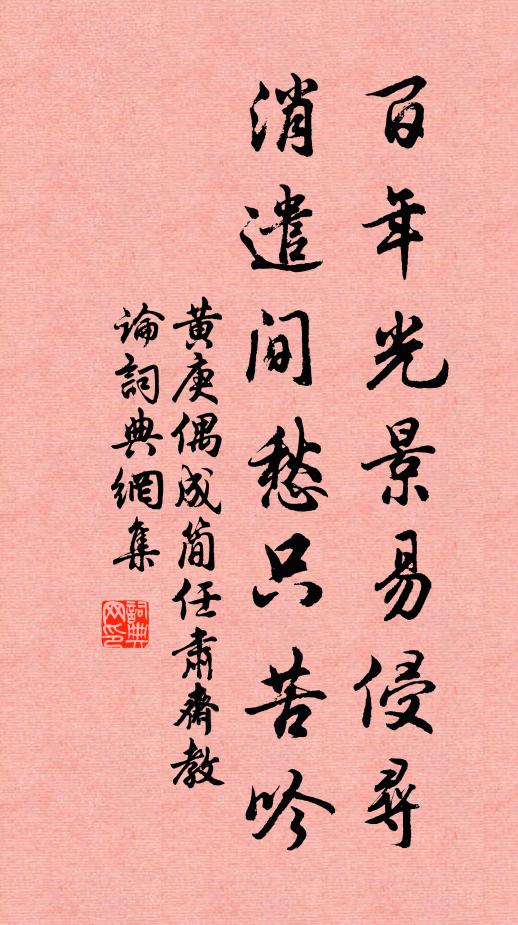 百年光景易侵尋
消遣間愁只苦吟
黃庚偶成簡任肅齋教
論詞典網集
詞典网印